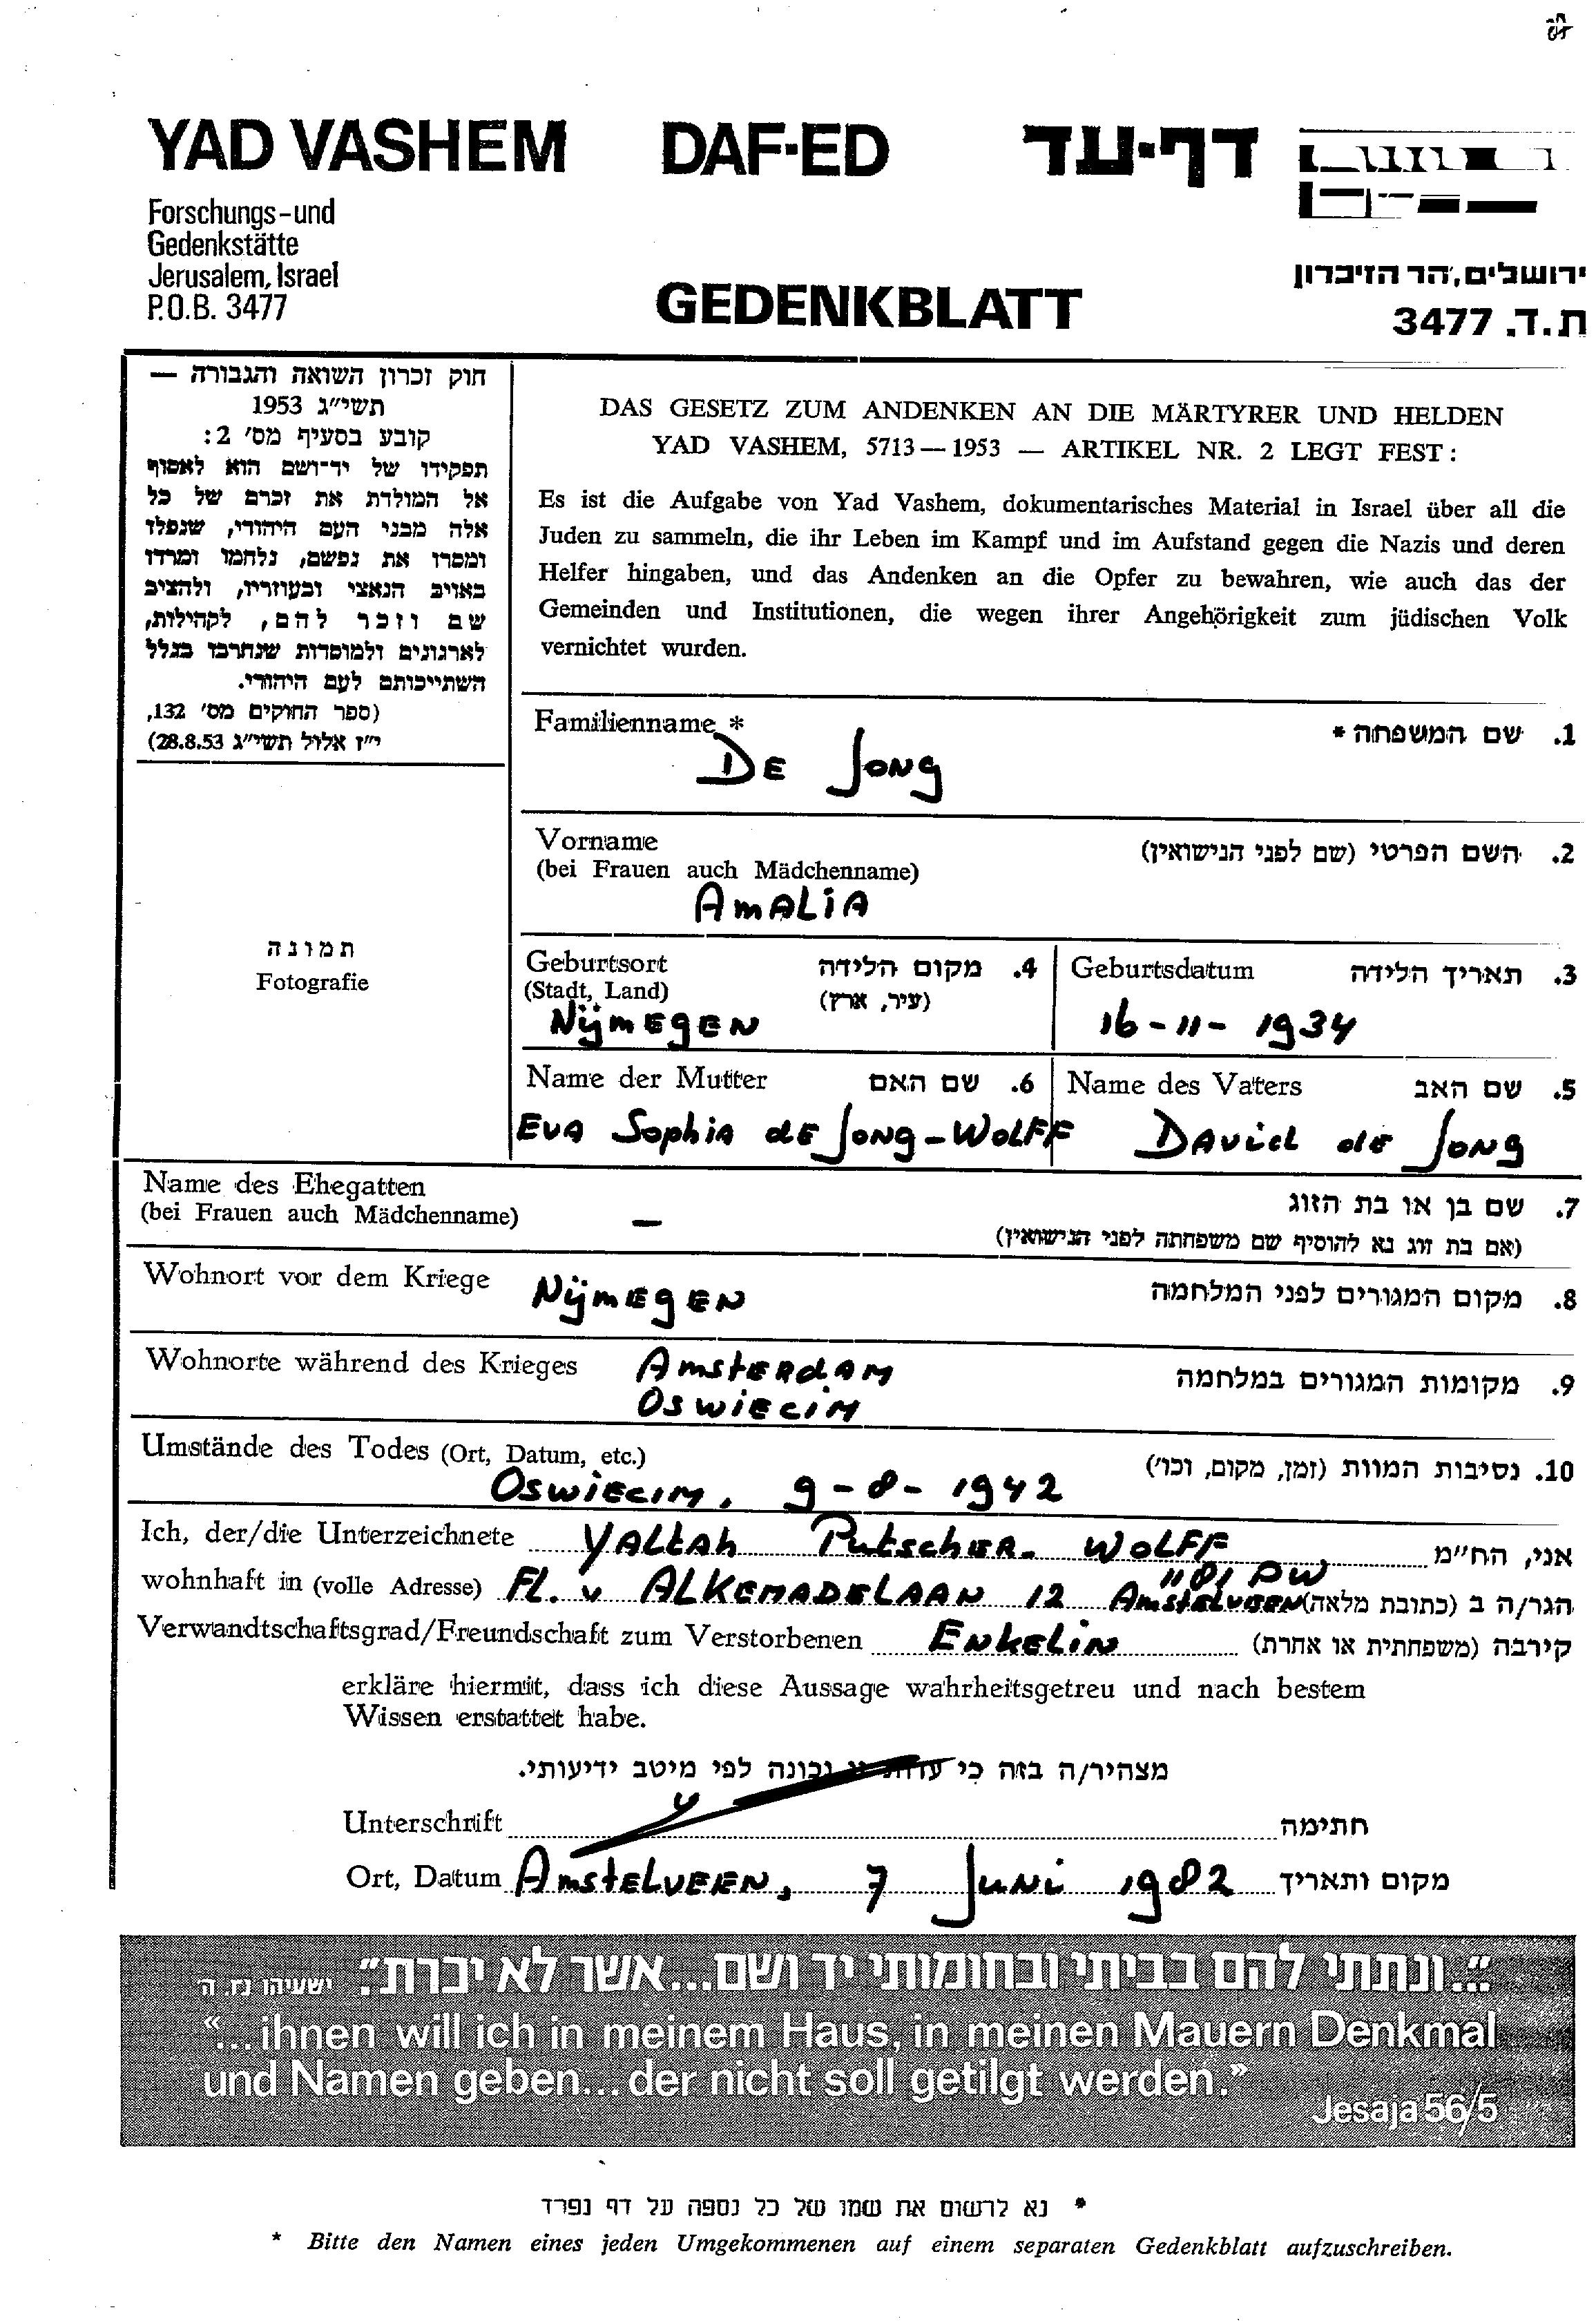 YAD VASHEM DAF-ED דף-עד
Forschungs-und
Gedenkstätte
Jerusalem, Israel
P.O.B. 3477
GEDENKBLATT
ירושלים, הר הזיכרון
ת.ד. 3477
חוק זכרון השואה והגבורה —
תשי״ג 1953
קובע בסעיף מס׳ 2:
תפקידו של יד־ושם הוא לאסוף
אל המולדת את זכרם של כל
אלה מבני העם היהודי, שנפלו
ומסרו את נפשם, נלחמו ומרדו
באויב הנאצי ובעוזריו, ולהציב
שם וזכר להם, לקהילות,
לארגונים ולמוסדות שנחרבו בגלל
השתייכותם לעם היהודי.
(ספר החוקים מס׳ 132,
י״ז אלול תשי״ג 28.8.53)
תמונה
Fotografie
DAS GESETZ ZUM ANDENKEN AN DIE MÄRTYRER UND HELDEN
YAD VASHEM, 5713—1953 — ARTIKEL NR. 2 LEGT FEST:
Es ist die Aufgabe von Yad Vashem, dokumentarisches Material in Israel über all die
Juden zu sammeln, die ihr Leben im Kampf und im Aufstand gegen die Nazis und deren
Helfer hingaben, und das Andenken an die Opfer zu bewahren, wie auch das der
Gemeinden und Institutionen, die wegen ihrer Angehörigkeit zum jüdischen Volk
vernichtet wurden.
Familienname * 1. שם המשפחה *
DE JONG
Vorname 2. השם הפרטי (שם לפני הנישואין)
(bei Frauen auch Mädchenname)
AMALIA
Geburtsort 4. מקום הלידה
(Stadt, Land) (עיר, ארץ)
NIJMEGEN
Geburtsdatum 3. תאריך הלידה
16-11-1934
Name der Mutter 6. שם האם
EVA SOPHIA DE JONG-WOLFF
Name des Vaters 5. שם האב
DAVID DE JONG
Name des Ehegatten 7. שם בן או בת הזוג
(bei Frauen auch Mädchenname) — (אם בת זוג נא להוסיף שם משפחתה לפני הנישואין)
Wohnort vor dem Kriege NIJMEGEN 8. מקום המגורים לפני המלחמה
Wohnorte während des Krieges AMSTERDAM 9. מקומות המגורים במלחמה
OSWIECIM
Umstände des Todes (Ort, Datum, etc.) 10. נסיבות המוות (זמן, מקום, וכו׳)
OSWIECIM, 9-8-1942
Ich, der/die Unterzeichnete YALTAH PUTSCHER-WOLFF אני, הח״מ
1181 PW
wohnhaft in (volle Adresse) FL. v ALKEMADELAAN 12 AMSTELVEEN הגר/ה ב (כתובת מלאה)
Verwandtschaftsgrad/Freundschaft zum Verstorbenen ENKELIN קירבה (משפחתית או אחרת)
erkläre hiermit, dass ich diese Aussage wahrheitsgetreu und nach bestem
Wissen erstattet habe.
מצהיר/ה בזה כי עדות נכונה לפי מיטב ידיעותי.
Unterschrift חתימה
Ort, Datum AMSTELVEEN, 7 JUNI 1982 מקום ותאריך
״...ונתתי להם בביתי ובחומותי יד ושם...אשר לא יכרת״. ישעיהו נו. ה
“...ihnen will ich in meinem Haus, in meinen Mauern Denkmal
und Namen geben...der nicht soll getilgt werden.”
Jesaja 56/5
* נא לרשום את שמו של כל נספה על דף נפרד
* Bitte den Namen eines jeden Umgekommenen auf einem separaten Gedenkblatt aufzuschreiben.